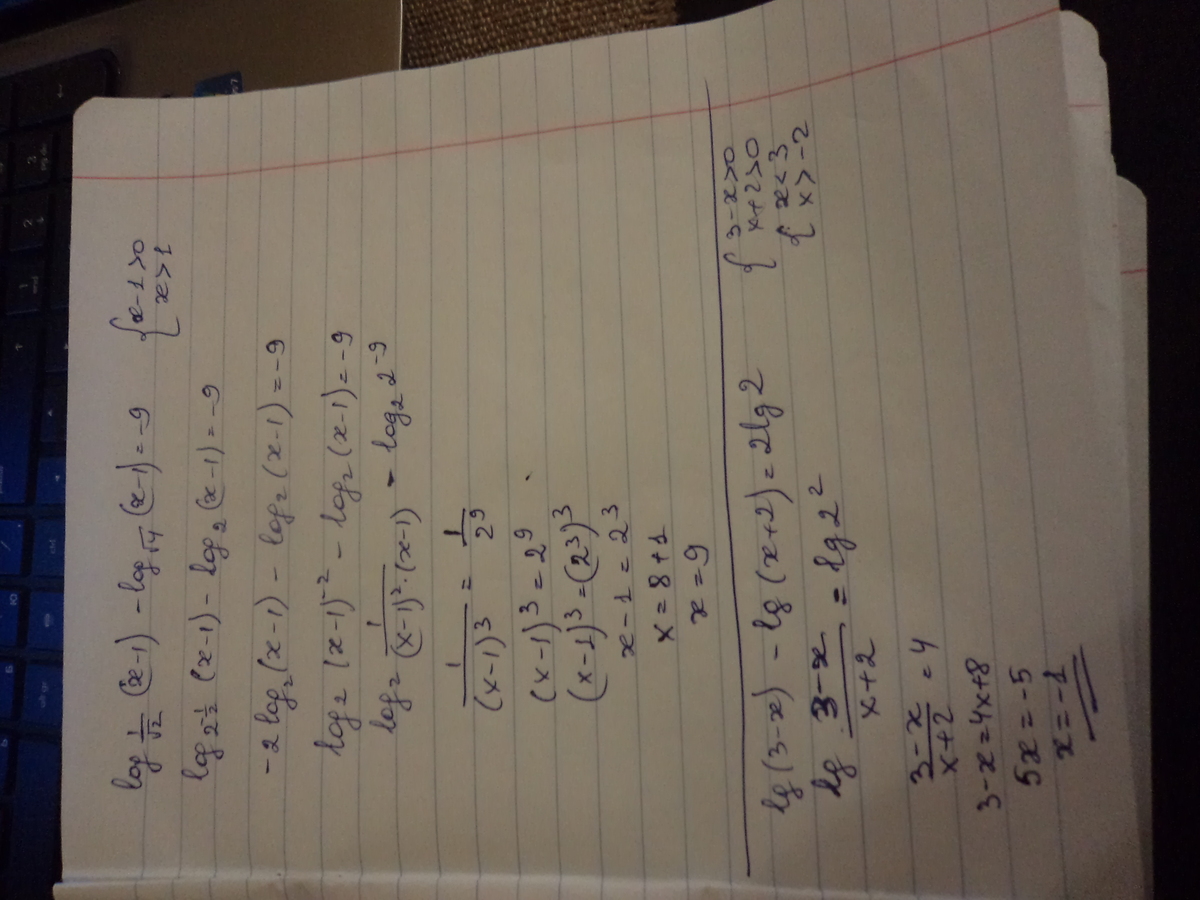 log 1/√2 (x-1) - log √4 (x-1) = -9 { x-1>0
x>1
log 2^-1/2 (x-1) - log 2 (x-1) = -9
-2 log₂ (x-1) - log₂ (x-1) = -9
log₂ (x-1)^-2 - log₂ (x-1) = -9
log₂ 1/(x-1)²·(x-1) - log₂ 2^-9
1/(x-1)³ = 1/2⁹
(x-1)³ = 2⁹
(x-1)³ = (2³)³
x-1 = 2³
x = 8+1
x = 9
lg (3-x) - lg (x+2) = 2lg 2 { 3-x>0
x+2>0
lg 3-x/x+2 = lg 2² { x<3
x>-2
3-x/x+2 = 4
3-x = 4x+8
5x = -5
x = -1